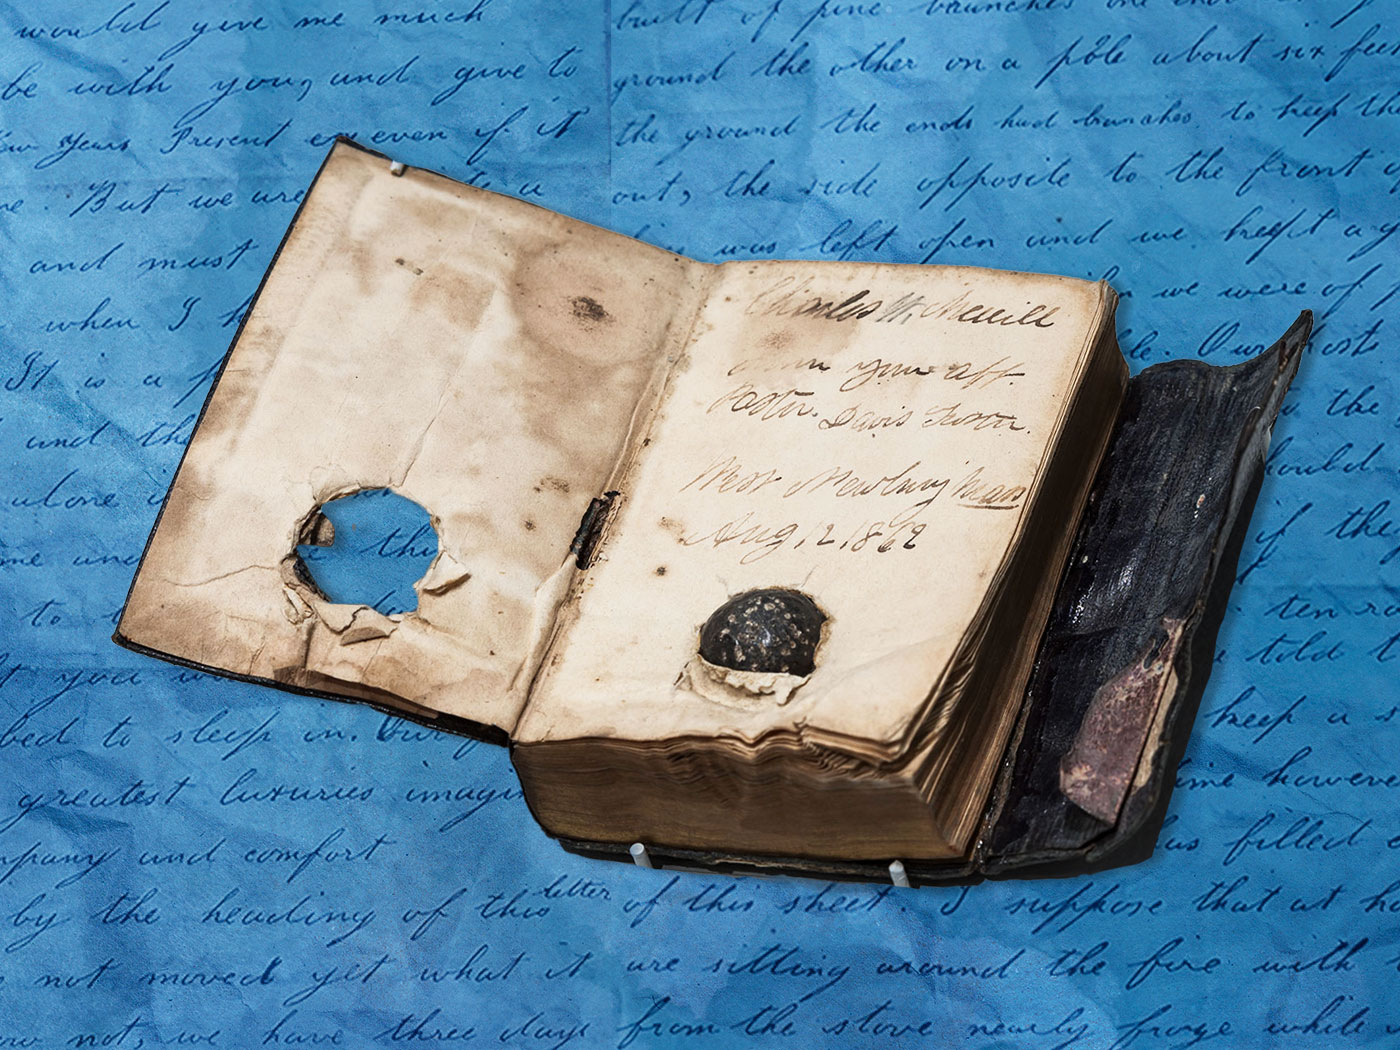 would give me much
be with you, and give to
Years Present even if it
But we are
and must
when I
It is a
and the
alone
to
bed to sleep in.
greatest luxuries
and comfort
by the heading of this letter of this sheet. I suppose that at
not moved yet what it are sitting around the fire with
not, we have three days from the stove nearly froze while
built of pine branches one end
ground the other on a pole about six feet
the ground the ends had branches to keep the
out, the side opposite to the front
was left open and we kept a
in we were of
Our
the
should
if they
ten
told
keep a
time however
was filled
Charles W. Merrill
from your aff.
Pastor. Davis Foster.
West Newbury Mass
Aug 12 1862